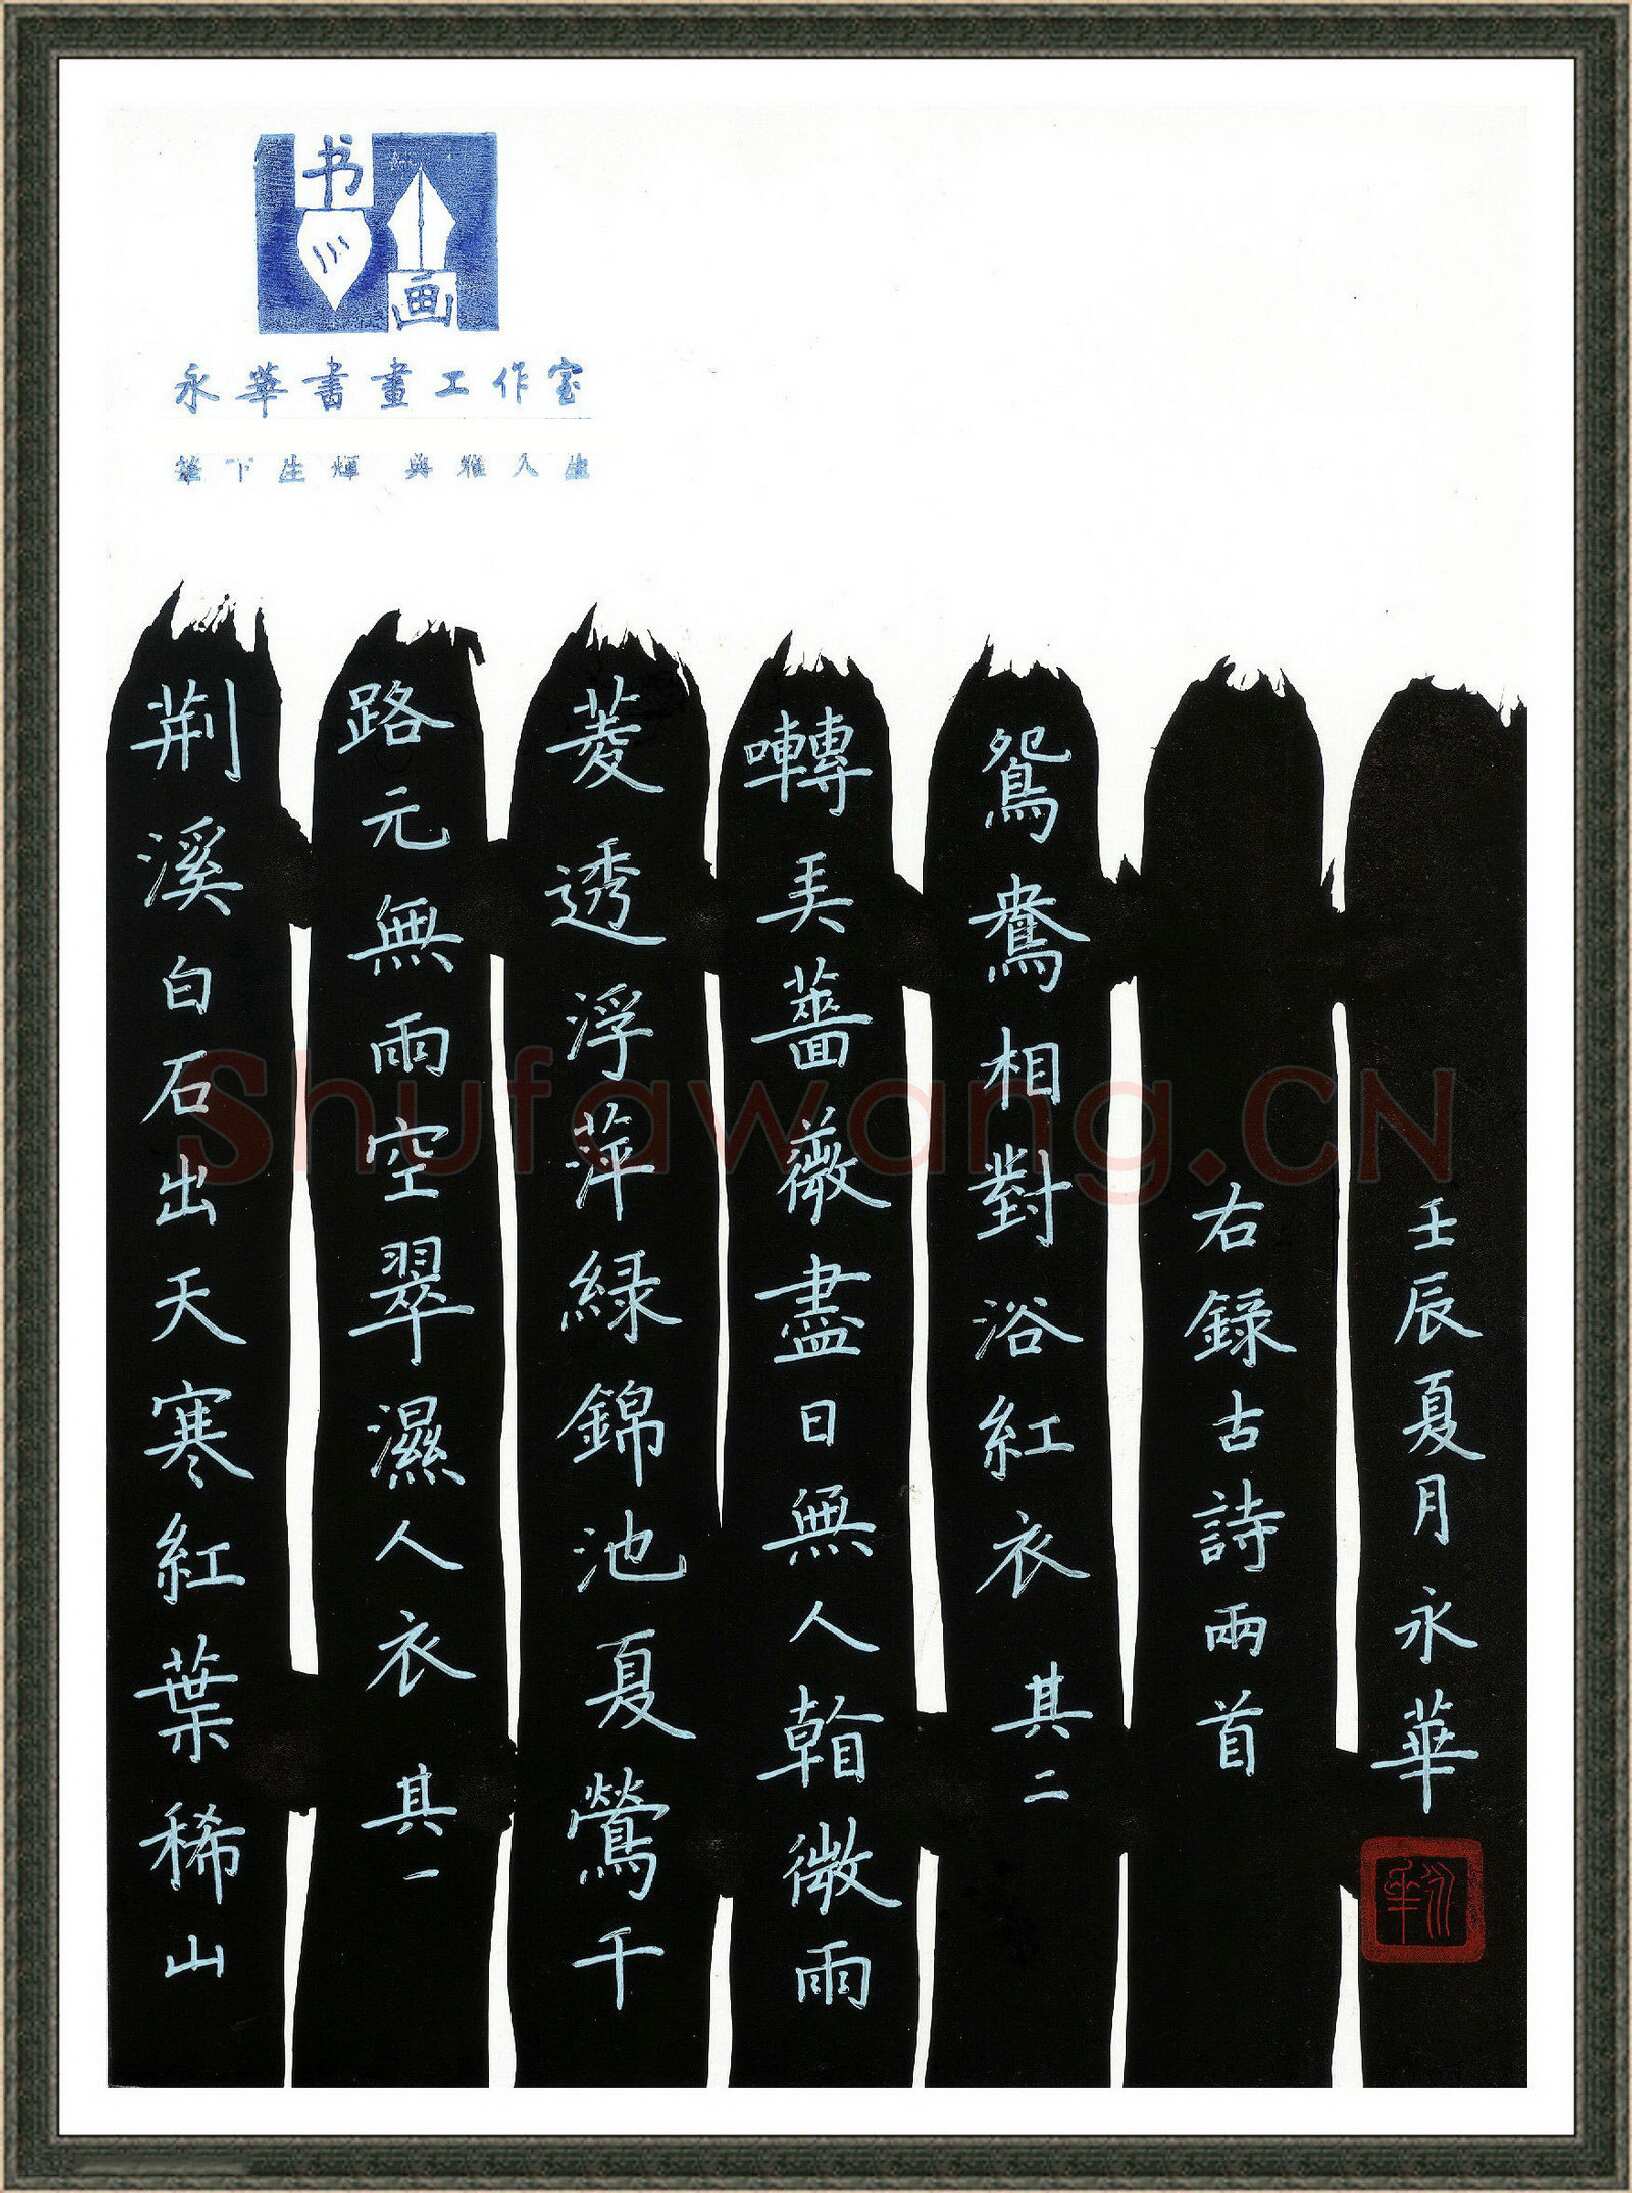 书
画
永華書畫工作室
筆下生輝 典雅人生
荆溪白石出天寒紅葉稀山
路元無雨空翠濕人衣 其一
菱透浮萍緑錦池夏鶯千
囀弄薔薇盡日無人看微雨
鴛鴦相對浴紅衣 其二
右錄古詩兩首
壬辰夏月永華
永華
Shufawang.CN